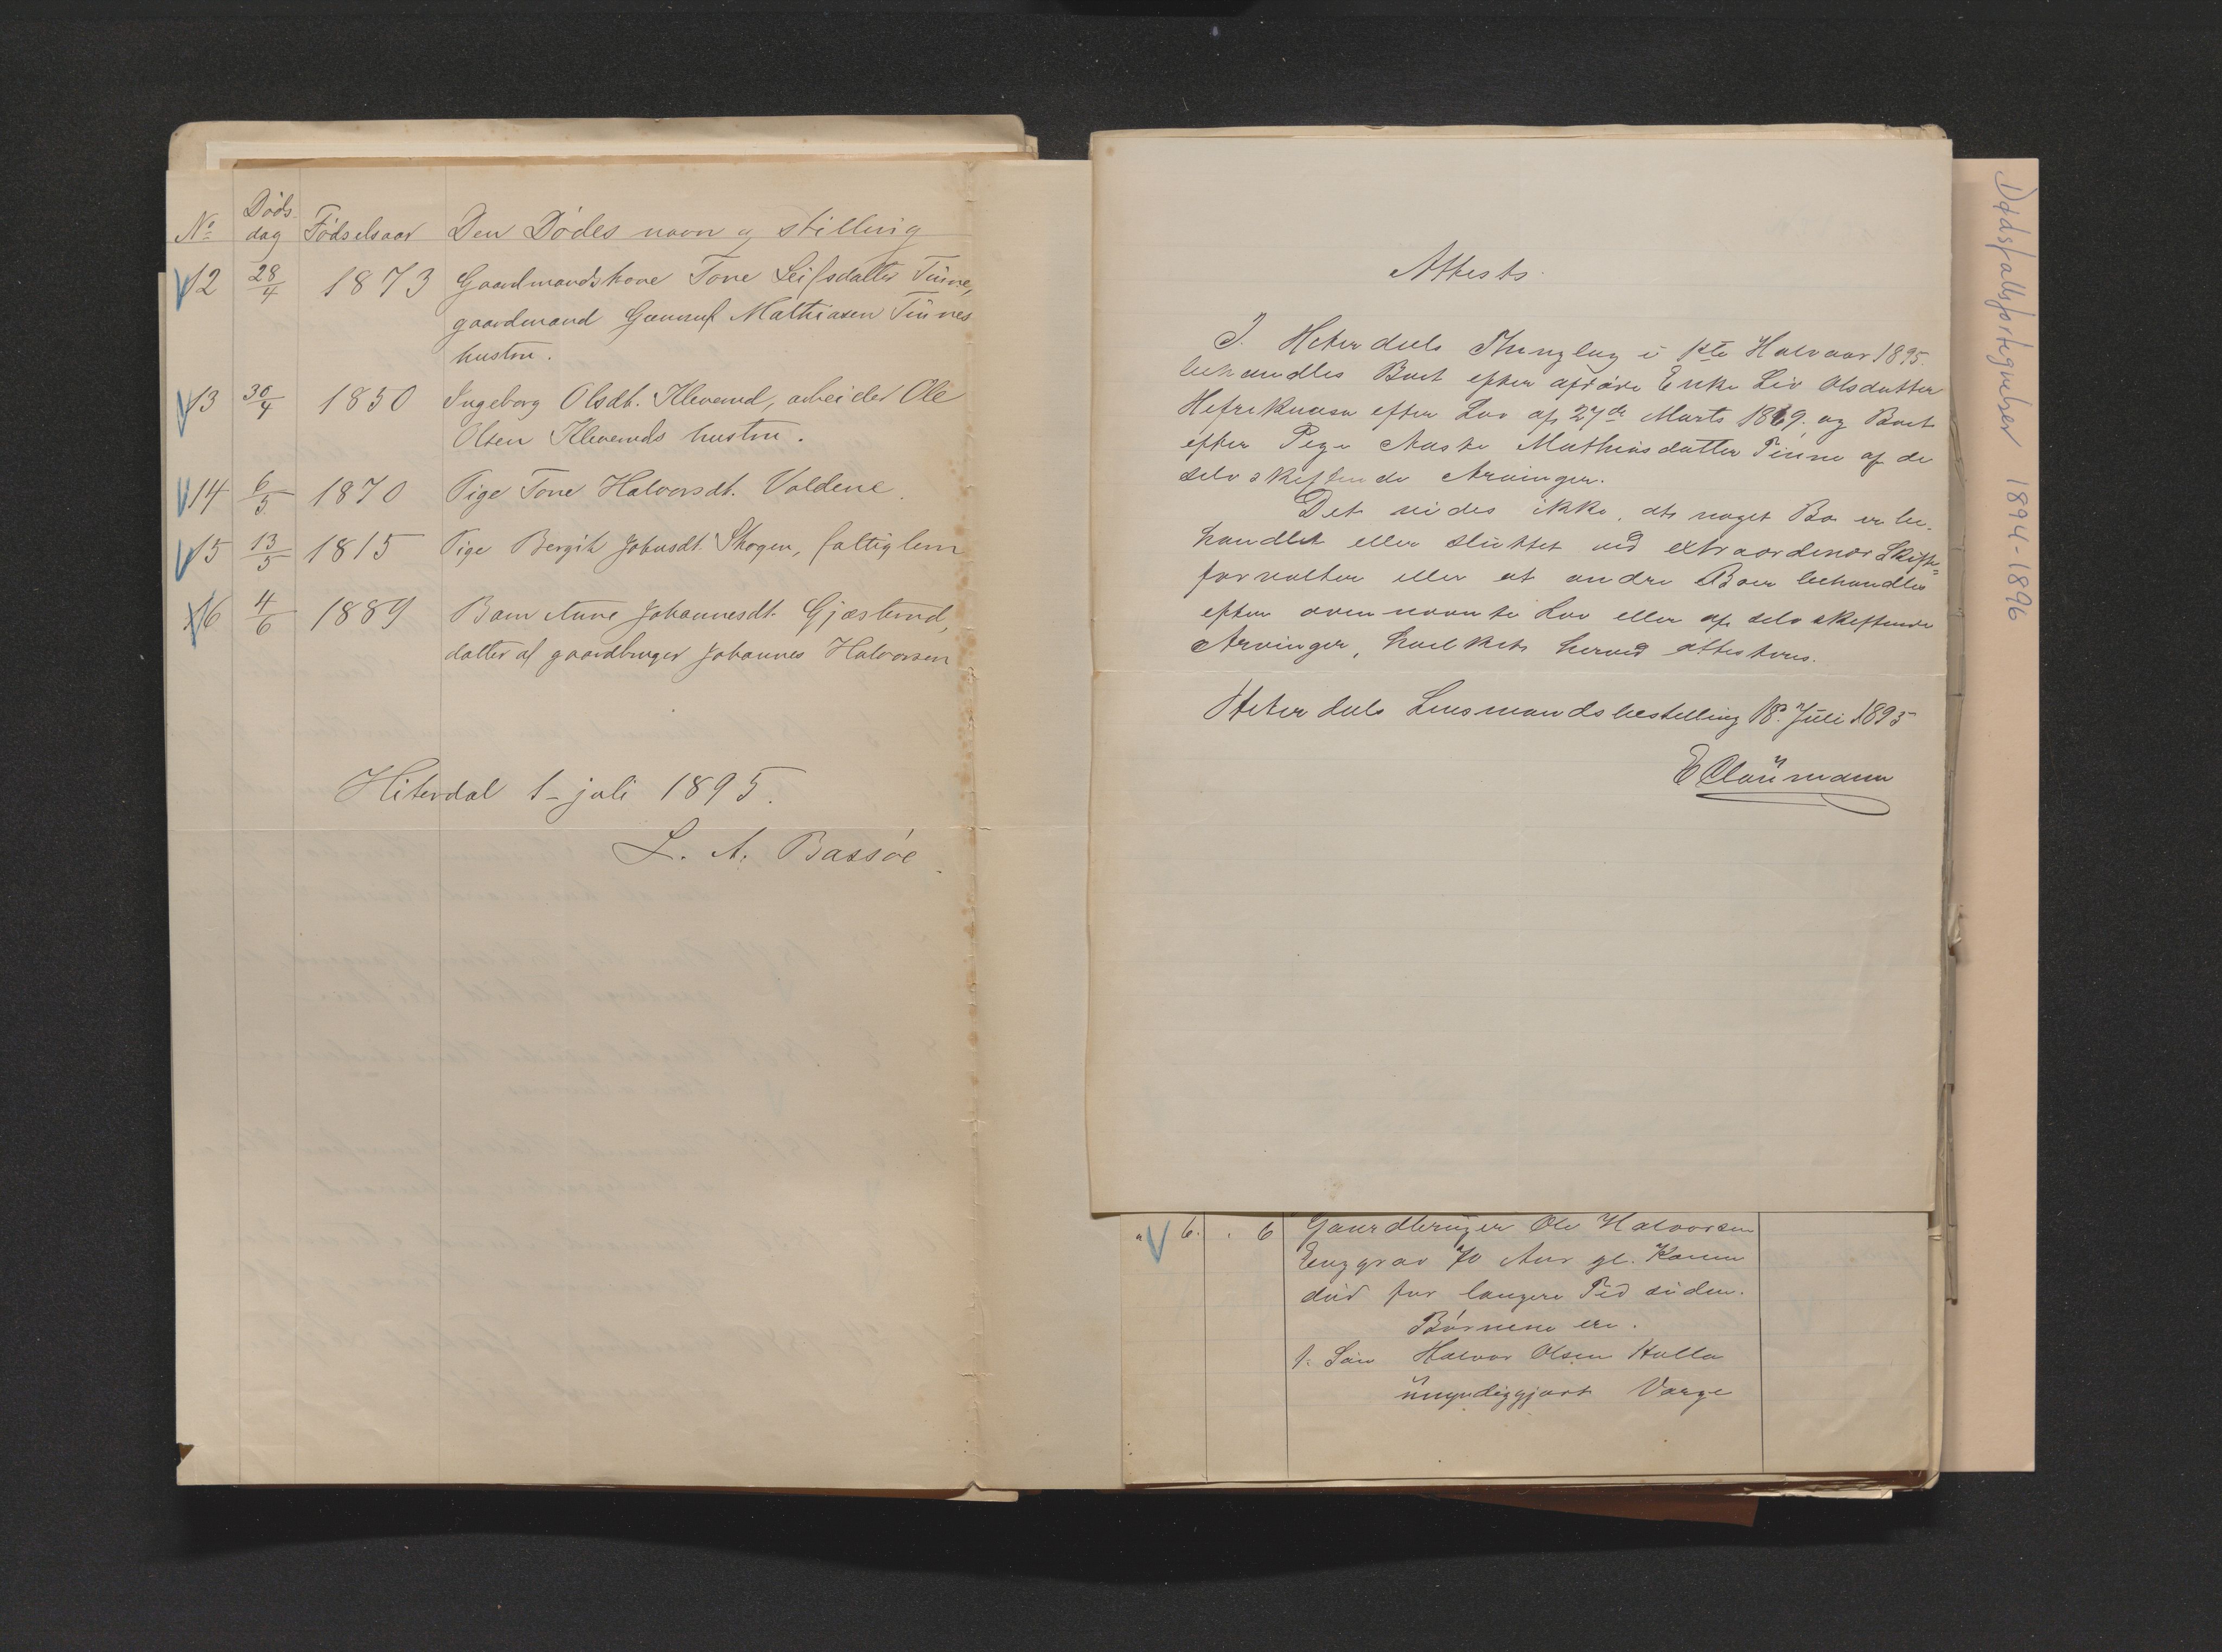 No
Døds
dag
Fødselsaar
Den Dødes navn og stilling
12 28/4 1873 Gaardmandskone Tone Leifsdatter Tinne,
gaardmand Gunnuf Mathiasen Tinnes
hustru.
13 30/4 1850 Ingeborg Olsdt. Klevernd, arbeider Ole
Olsen Klevernds hustru.
14 6/5 1870 Pige Tone Halvorsdt. Valdene.
15 13/5 1815 Pige Bergit Johnsdt. Skogen, fattiglem
16 4/6 1889 Barn Anne Johannesdt. Gjæslund,
datter af gaardbruger Johannes Halvorsen
Hiterdal 1- juli 1895.
L. A. Bassøe.
Attests.
I Heterdals Thinglag i 1ste Halvaar 1895.
behandles Boet efter afdøde Enke Liv Olsdatter
Hefreknasa efter Lov af 27de Marts 1869. og Boet
efter Pige Aaste Mathiasdatter Tinne af de
selvskiftende Arvinger.
Det vides ikke, at noget Bo er be-
handlet eller sluttet ved extraordinær Skifte=
forvalter eller at andre Boer behandles
efter ovennævnte Lov eller af selvskiftende
Arvinger, hvilket herved attesteres.
Heterdals Lensmandsbestilling 18. Juli 1895
E Claumann
" 6. . 6 Gaardbruger Ole Halvorsen
Enggrav 70 Aar gl. Konen
død for længere Tid siden.
Børnene ere.
1. Søn Halvor Olsen Hulla
umyndiggjort Værge
Dødsfallsfortegnelser 1894-1896